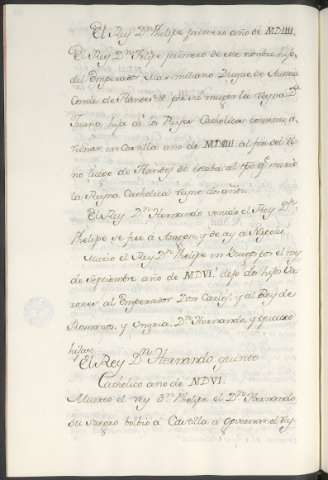 El Rey Dn Phelipe primero año de MDIIII.
El Rey Dn Phelipe primero de este nombre hijo
del Emperador Maximiliano Duque de Austria
Conde de Flandes por su muger la Reyna Da
Juana hija de los Reyes Catholicos comenzo a
reinar en Castilla año de MDIIII al fin del
no luego de Flandes do estaba al tpo q murio
la Reyna Catholica reyno dos años.
El Rey Dn Hernando venido el Rey Dn
Phelipe se fue a Aragon, y de ay a Napoles.
Murio el Rey Dn Phelipe en Burgos por el mes
de Septiembre año de MDVI. dejo dos hijos Va
rones al Emperador Don Carlos, y al Rey de
Romanos, y Ungria, Dn Hernando, y quatro
hijas.
El Rey Dn Hernando quinto
Catholico año de MDVI.
Muerto el rey Dn Phelipe el Dn Hernando
su suegro bolbio a Castilla a governar el Rey